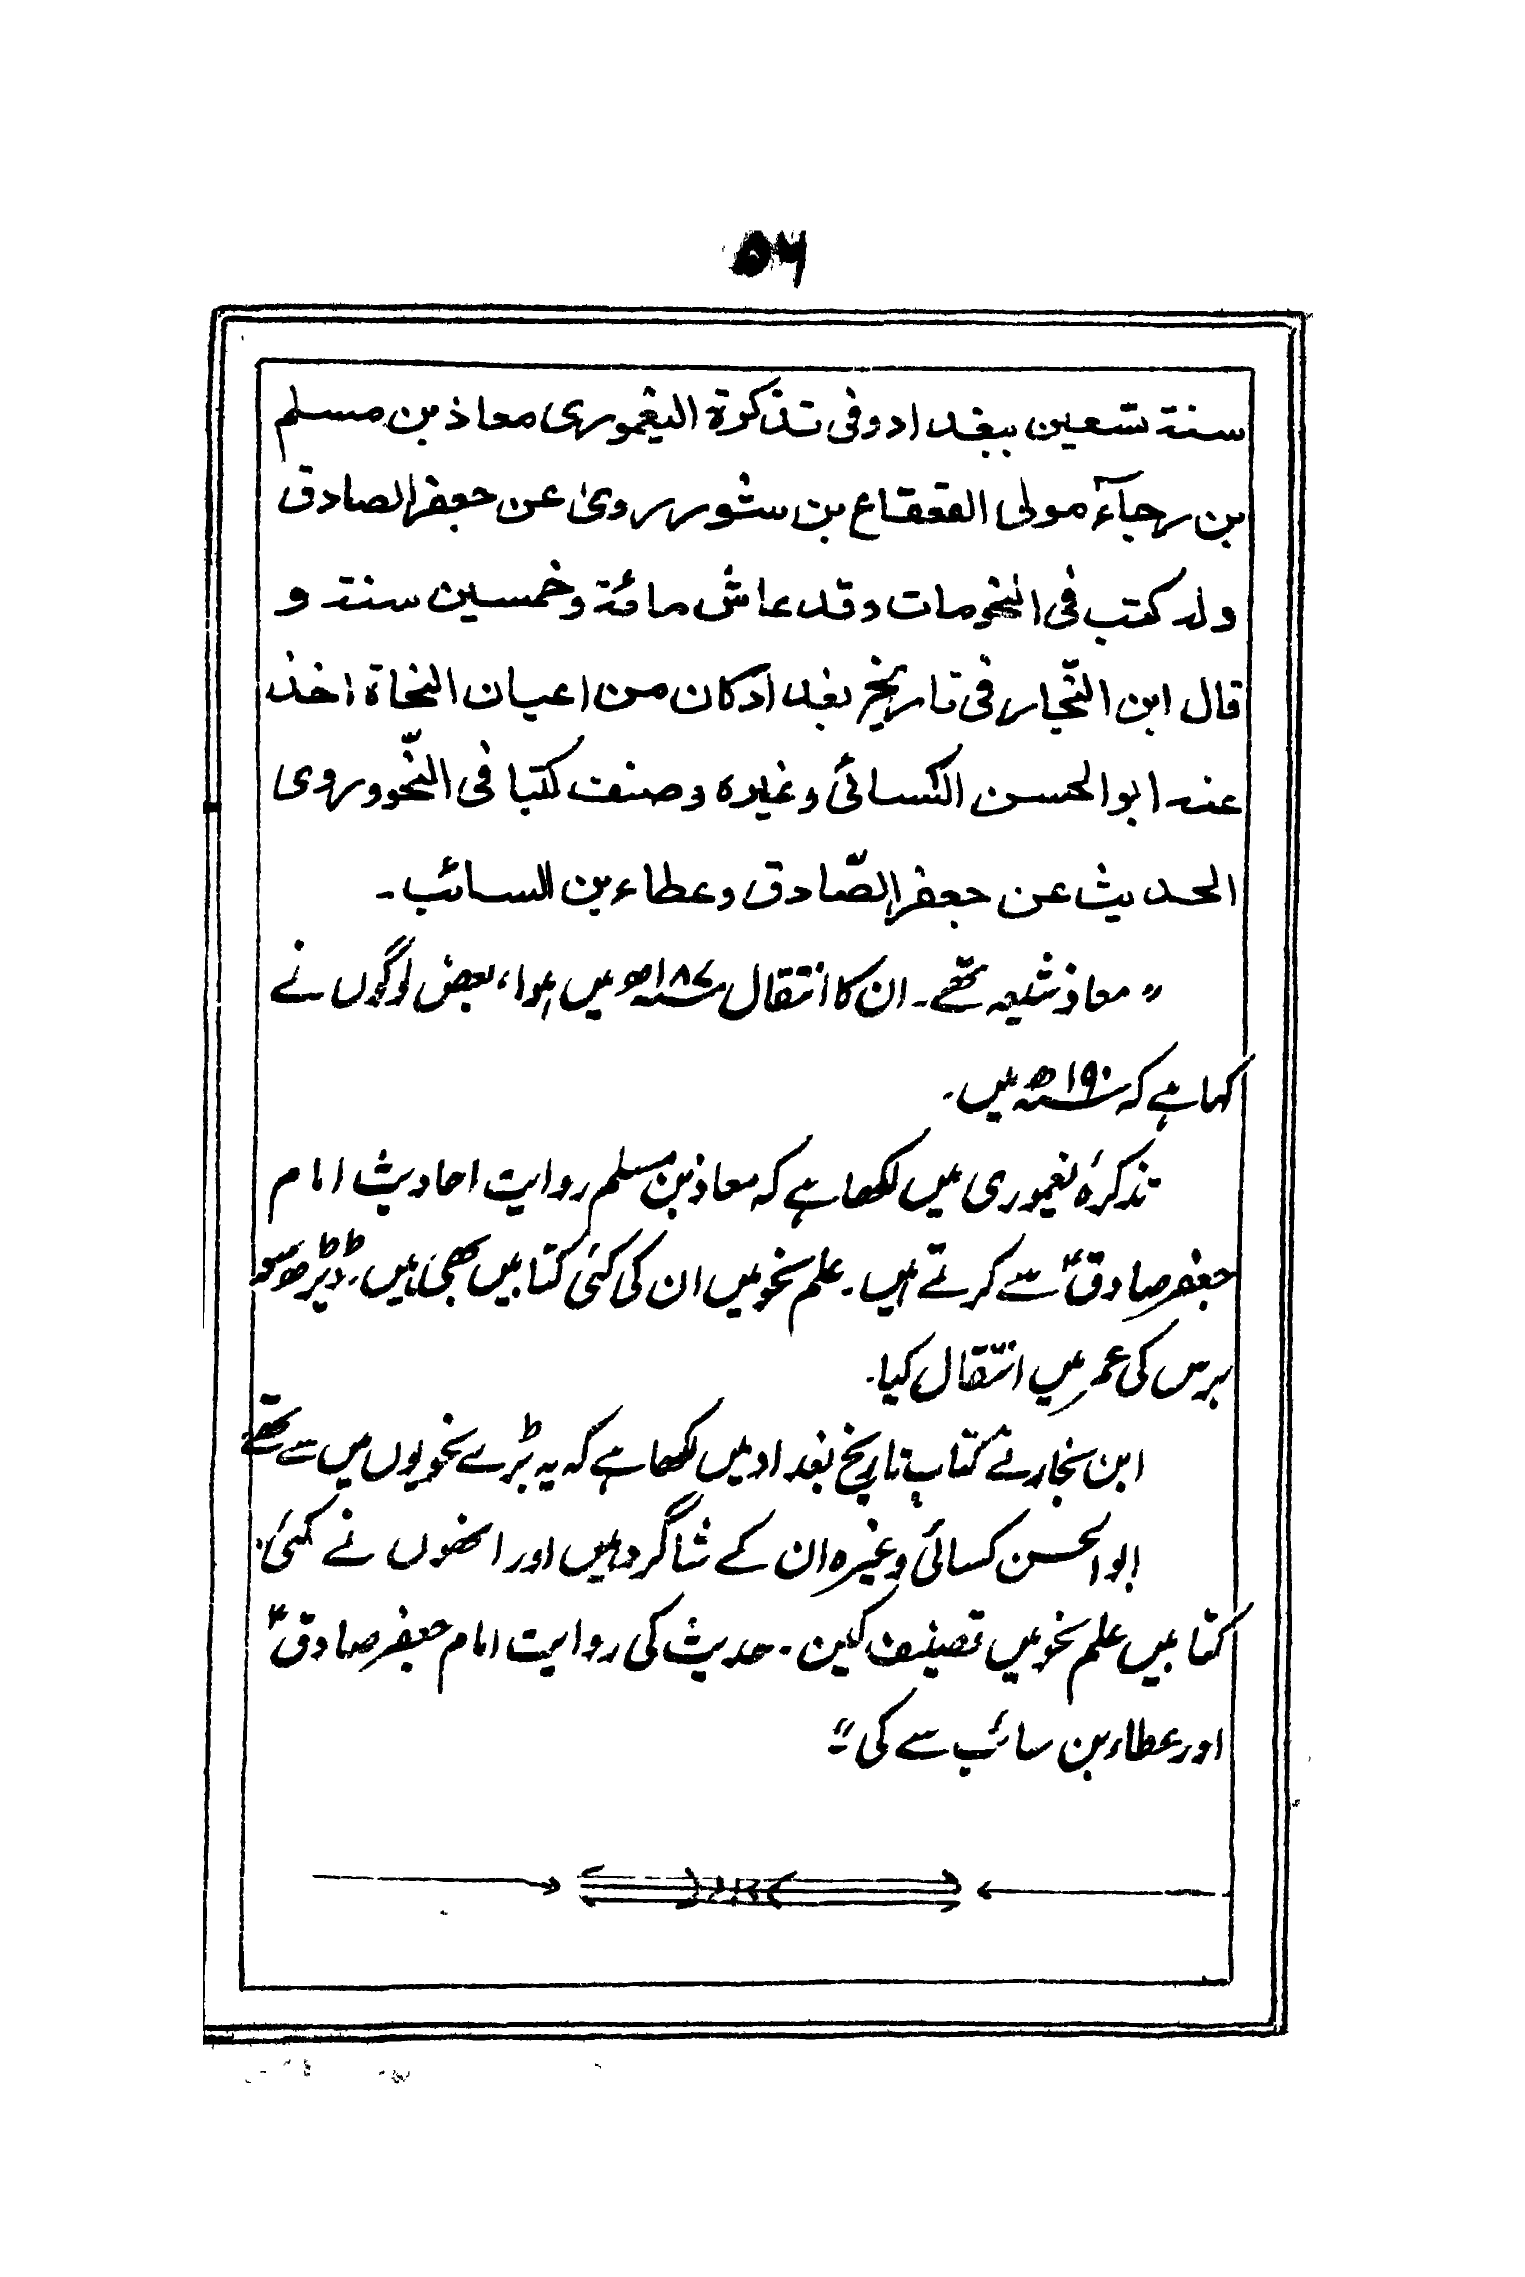 ۵۶
سنة تسعين ببغداد وفى تذكرة اليغمورى معاذ بن مسلم
بن رجآء مولى القعقاع بن شور روىٰ عن جعفر الصادق
وله كتب فى النحو مات وقد عاش مائة وخمسين سنة و
قال ابن النّجار فى تاريخ بغداد كان من اعيان النحاة اخذ
عنه ابو الحسن الكسائى وغيره وصنف كتبا فى النّحو وروى
الحديث عن جعفر الصّادق وعطاء بن السائب۔
” معاذ شیعہ تھے۔ ان کا انتقال ۱۸۷ھ میں ہوا، بعض لوگوں نے
کہا ہے کہ ۱۹۰ھ میں۔
تذکرۂ یغموری میں لکھا ہے کہ معاذ بن مسلم روایت احادیث امام
جعفر صادقؑ سے کرتے ہیں۔ علم نحو میں ان کی کئی کتابیں بھی ہیں۔ ڈیڑھ سو
برس کی عمر میں انتقال کیا۔
ابن نجار نے کتاب تاریخ بغداد میں لکھا ہے کہ یہ بڑے نحویوں میں سے تھے
ابو الحسن کسائی وغیرہ ان کے شاگرد ہیں اور انھوں نے کئی
کتابیں علم نحو میں تصنیف کیں۔ حدیث کی روایت امام جعفر صادقؑ
اور عطاء بن سائب سے کی ۔“